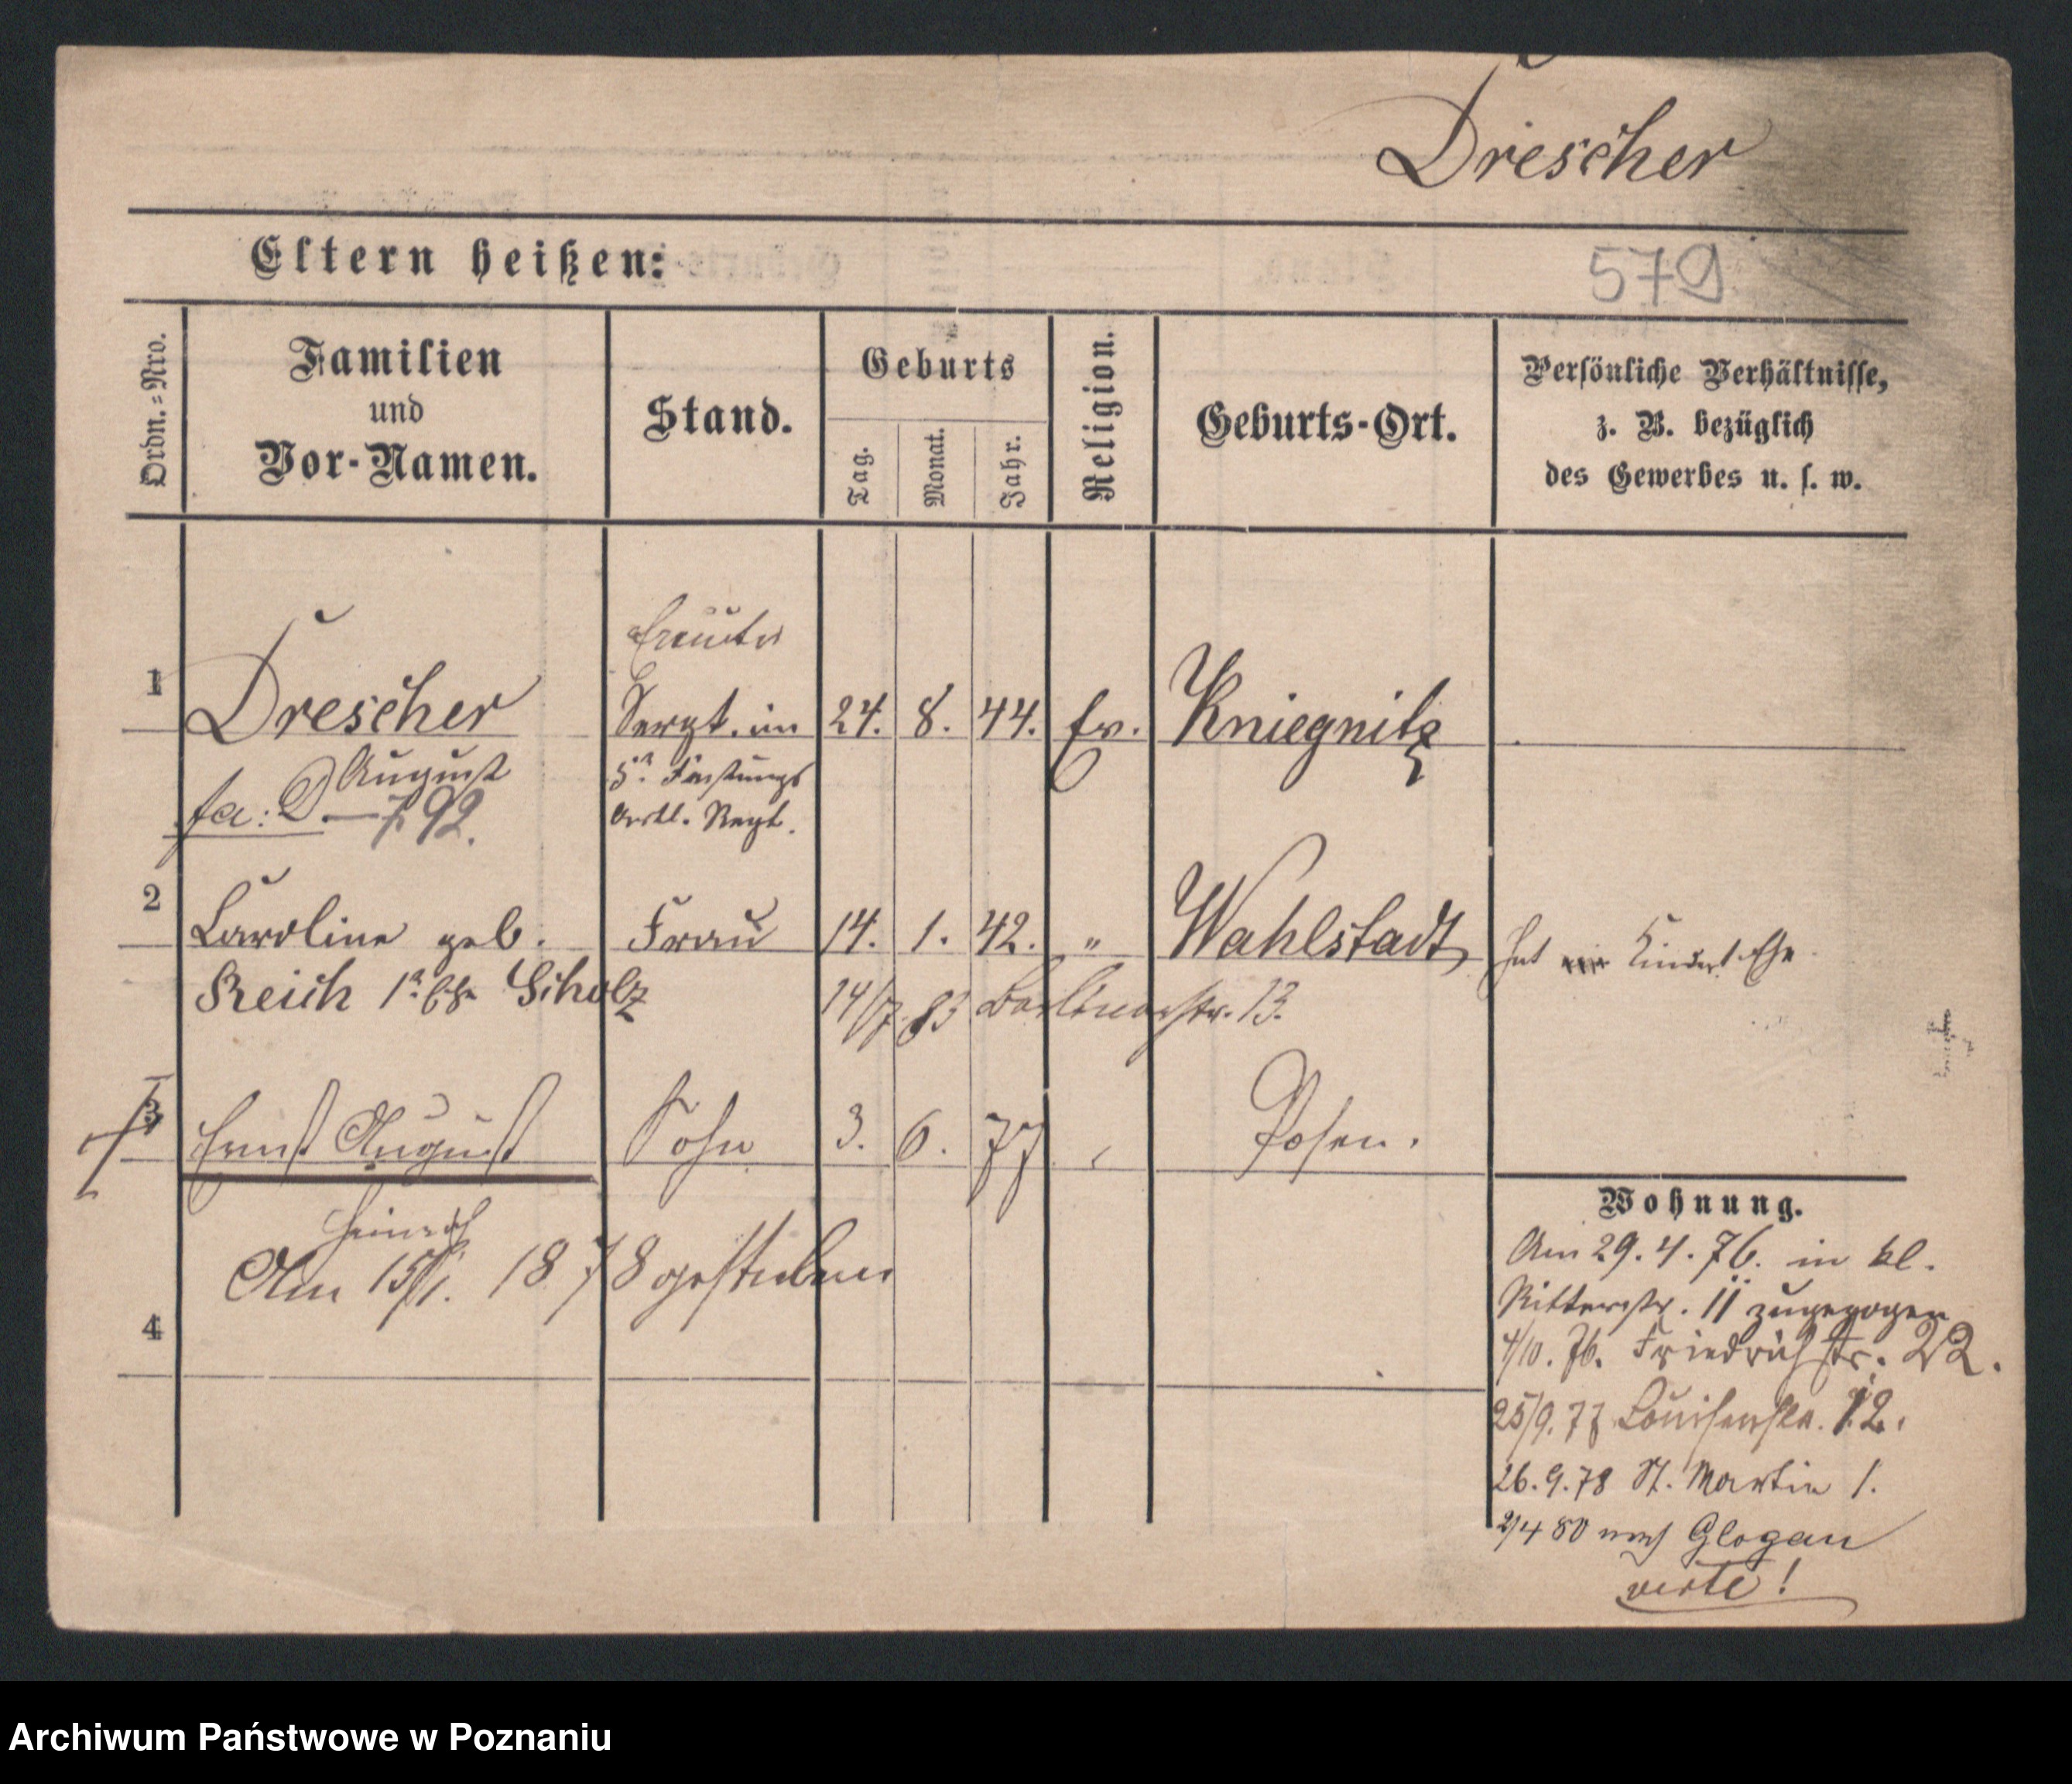 Drescher
Eltern heißen:
579
Ordn.-Nro.
Familien
und
Vor-Namen.
Stand.
Geburts
Tag.
Monat.
Jahr.
Religion.
Geburts-Ort.
Persönliche Verhältnisse,
z. B. bezüglich
des Gewerbes u. s. w.
1
Drescher
August
fa: D. — 92.
Sergt. im
5n Festungs
Artl. Regt.
24. 8. 44. Ev. Kniegnitz
2
Caroline geb.
Reich 1r Ehe Scholz
Frau 14. 1. 42. " Wahlstadt
hat Kinder Ehe
14/7. 83 Berlinerstr. 13.
3
Ernst August
Heinrich
Sohn 3. 6. 77 Posen.
Am 15/1. 1878 gestorben
4
Wohnung.
Am 29. 4. 76. in kl.
Ritterstr. 11 zugezogen
4/10. 76. Friedrichstr. 22.
25/9. 77 Louisenstr. 12.
26. 9. 78 St. Martin 1.
2/4 80 nach Glogau
verte!
Archiwum Państwowe w Poznaniu